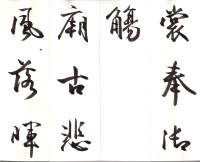 裳奉御
觴
廟古悲
風落暉